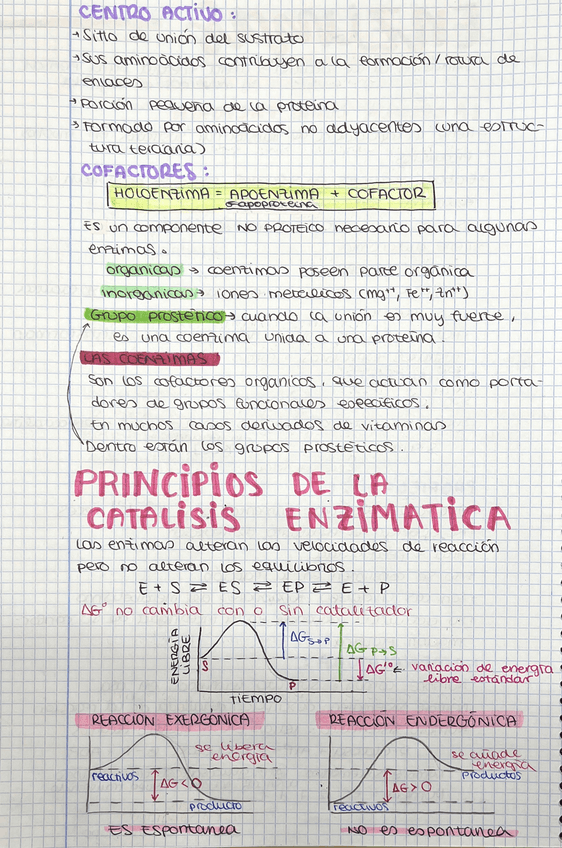 CENTRO ACTIVO:
→ Sitio de unión del sustrato
→ Sus aminoácidos contribuyen a la formación/rotura de
enlaces
→ Porción pequeña de la proteína
→ Formado por aminoácidos no adyacentes (una estruc-
tura terciaria)
COFACTORES:
HOLOENZIMA = APOENZIMA + COFACTOR
= apoproteína
Es un componente NO PROTEICO necesario para algunas
enzimas.
orgánicas → coenzimas poseen parte orgánica
inorgánicas → iones metálicos (Mg⁺⁺, Fe⁺⁺, Zn⁺⁺)
Grupo prostético → cuando la unión es muy fuerte,
es una coenzima unida a una proteína.
LAS COENZIMAS
Son los cofactores orgánicos, que actúan como porta-
dores de grupos funcionales específicos.
En muchos casos derivados de vitaminas
Dentro están los grupos prostéticos.
PRINCIPIOS DE LA
CATALISIS ENZIMATICA
Las enzimas alteran las velocidades de reacción
pero no alteran los equilibrios.
E + S ⇄ ES ⇄ EP ⇄ E + P
ΔG° no cambia con o sin catalizador
ENERGÍA LIBRE
S
P
ΔG S→P
ΔG P→S
ΔG'° ← variación de energía
libre estándar
TIEMPO
REACCIÓN EXERGÓNICA
se libera
energía
reactivos
ΔG < 0
producto
ES ESPONTANEA
REACCIÓN ENDERGÓNICA
se añade
energía
productos
ΔG > 0
reactivos
NO es espontanea